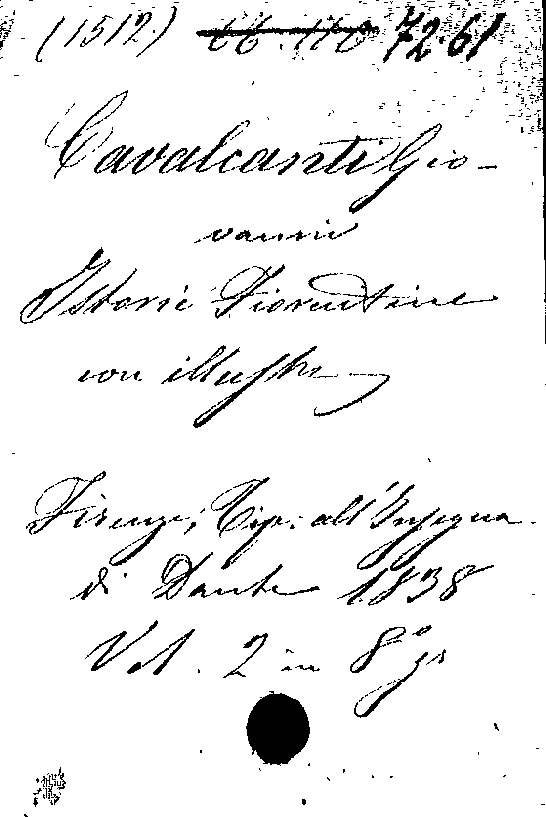 (1512.) 66.110 72.61
Cavalcanti Gio-
vanni
Istorie Fiorentine
con illustr.
Firenze, Tip. all'Insegna
di Dante 1838
Vol. 2 in 8° gr